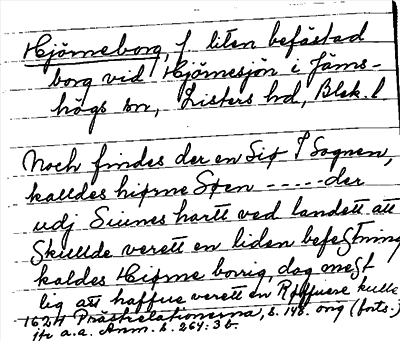 Hjörneborg, f. liten befästad
borg vid Hjörnesjön i Jäms-
högs sn, Listers hd, Blek. l
Noch findes der en Siø I Sognen,
kalldes hiørne Søen ----- der
udj Siunes hartt ved landett att
Skullde verett en liden befestning
kaldes Hiørne borig, dog mest
lig att haffue verett en Røffuere kulle
1624 Prästrelationerna, s. 148. orig (forts.)
jfr a.a. Anm. s. 264: 3 b.